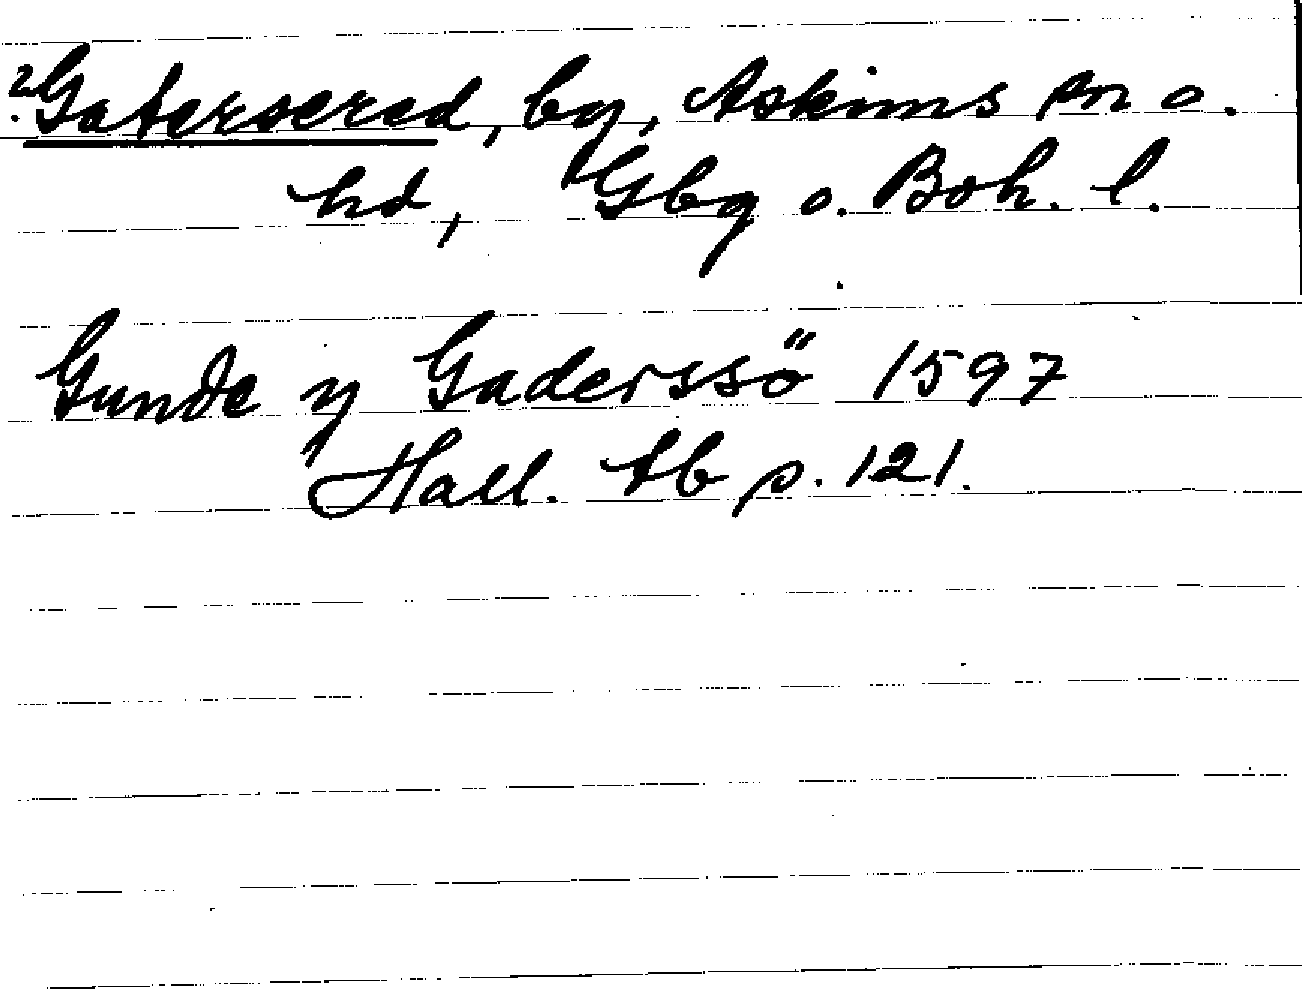 ?Gatersered, by, Askims sn o.
hd, Gbg o. Boh. l.
Gunde y Gaderssö 1597
Hall. tb p. 121.